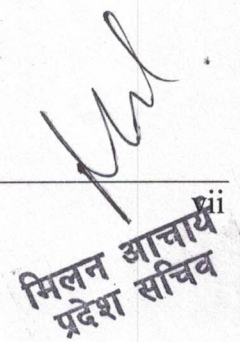 vii
मिलन आचार्य
प्रदेश सचिव